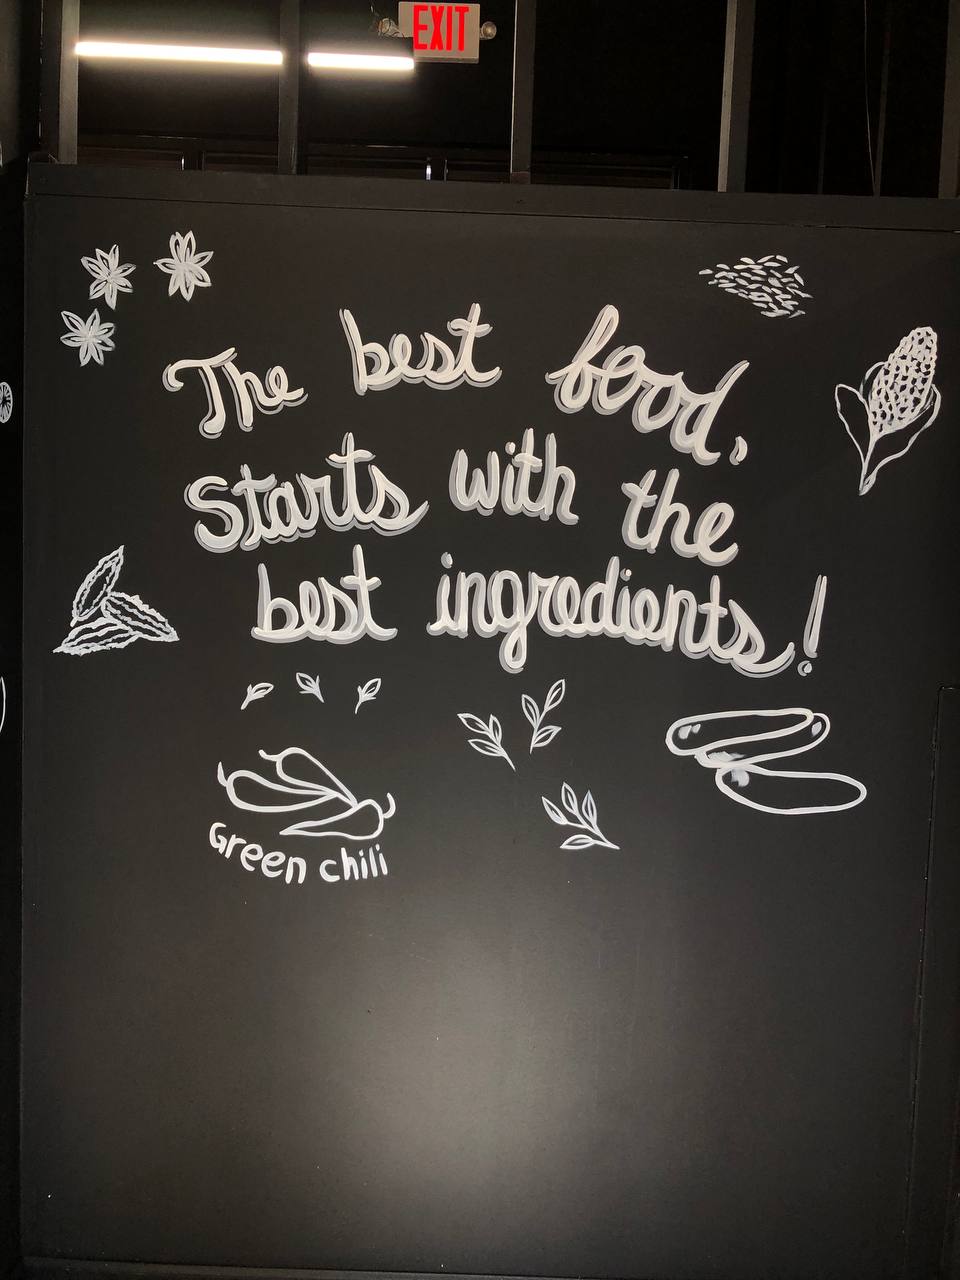 EXIT
The best food,
Starts with the
best ingredients,!
Green chili